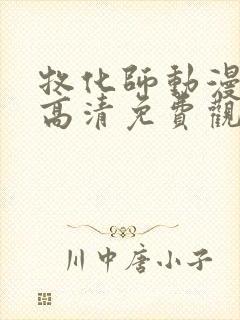 牧化師動漫
高清免費觀
川中唐小子